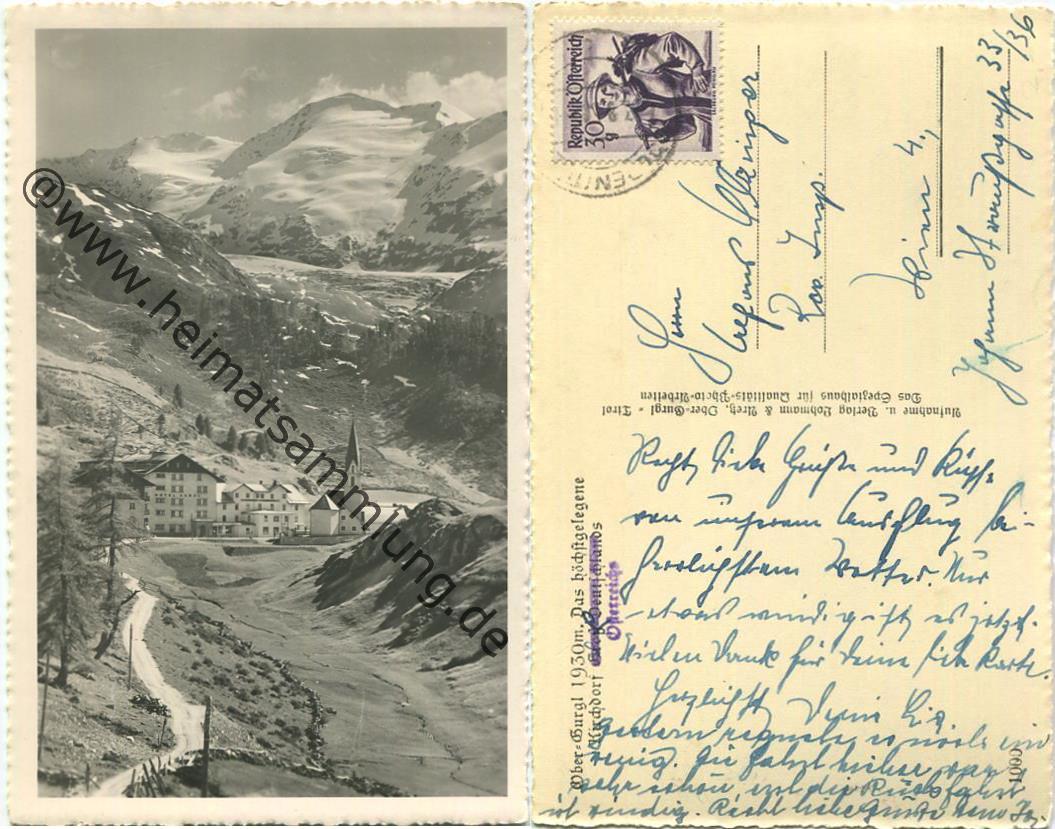 HOTEL GURGL
@www.heimatsammlung.de
Republik Österreich
30
g
Herrn
Stefans
Insp.
Wien 4.,
Johann Straußgasse 33
/36
Aufnahme u. Verlag Lohmann & Aretz, Ober-Gurgl - Tirol
Das Spezialhaus für Qualitäts-Photo-Arbeiten
Ober-Gurgl 1930m. Das höchstgelegene
Kirchdorf Groß-Deutschlands
Österreichs
1000
Recht liebe Grüße und Küsse
von unserem Ausflug bei
herrlichstem Wetter. Nur
etwas windig ist es jetzt.
Vielen Dank für Deine liebe Karte.
Herzlichst Deine
Gestern regnete es noch ein
wenig. Die Fahrt hieher war
sehr schön und die Rückfahrt
ist windig. Recht liebe Grüße